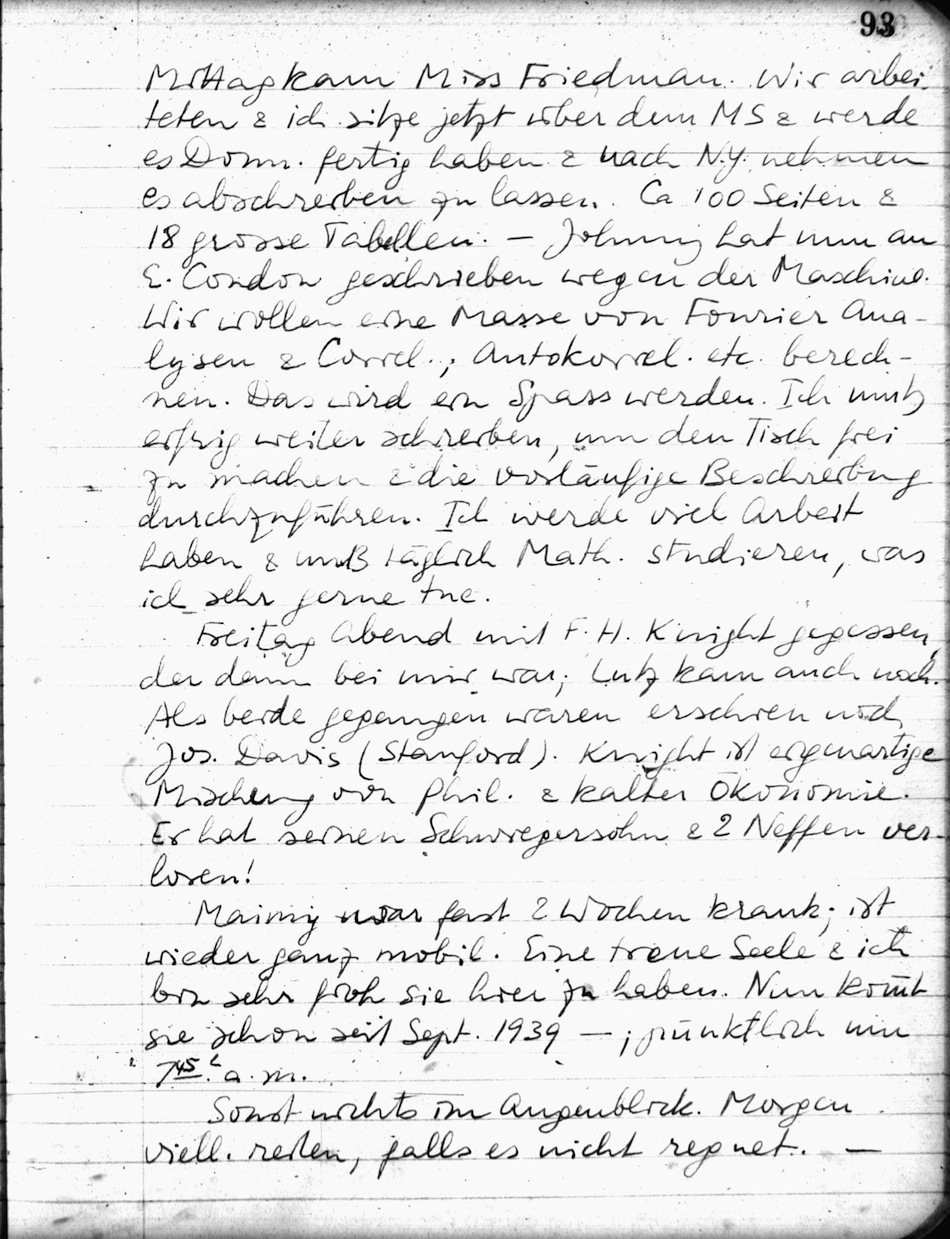 93
Mittag kam Miss Friedman. Wir arbei-
teten & ich sitze jetzt über dem MS & werde
es Donn. fertig haben & nach N.Y. nehmen
es abschreiben zu lassen. Ca 100 Seiten &
18 grosse Tabellen. — Johnny hat nun an
E. Condon geschrieben wegen der Maschine.
Wir wollen eine Masse von Fourier Ana-
lysen & Correl., Autokorrel. etc. berech-
nen. Das wird ein Spass werden. Ich muß
eifrig weiter schreiben, um den Tisch frei
zu machen & die vorläufige Beschreibung
durchzuführen. Ich werde viel Arbeit
haben & muß täglich Math. studieren, was
ich sehr gerne tue.
Freitag Abend mit F. H. Knight gegessen,
der dann bei mir war; Lutz kam auch noch.
Als beide gegangen waren erschien noch
Jos. Davis (Stanford). Knight ist eigenartige
Mischung von Phil. & kalter Ökonomie.
Er hat seinen Schwiegersohn & 2 Neffen ver-
loren!
Maimy war fast 2 Wochen krank; ist
wieder ganz mobil. Eine treue Seele & ich
bin sehr froh sie hier zu haben. Nun kom̄t
sie schon seit Sept. 1939 — ; pünktlich um
7⁴⁵ a.m.
Sonst nichts im Augenblick. Morgen
viell. reiten, falls es nicht regnet. —